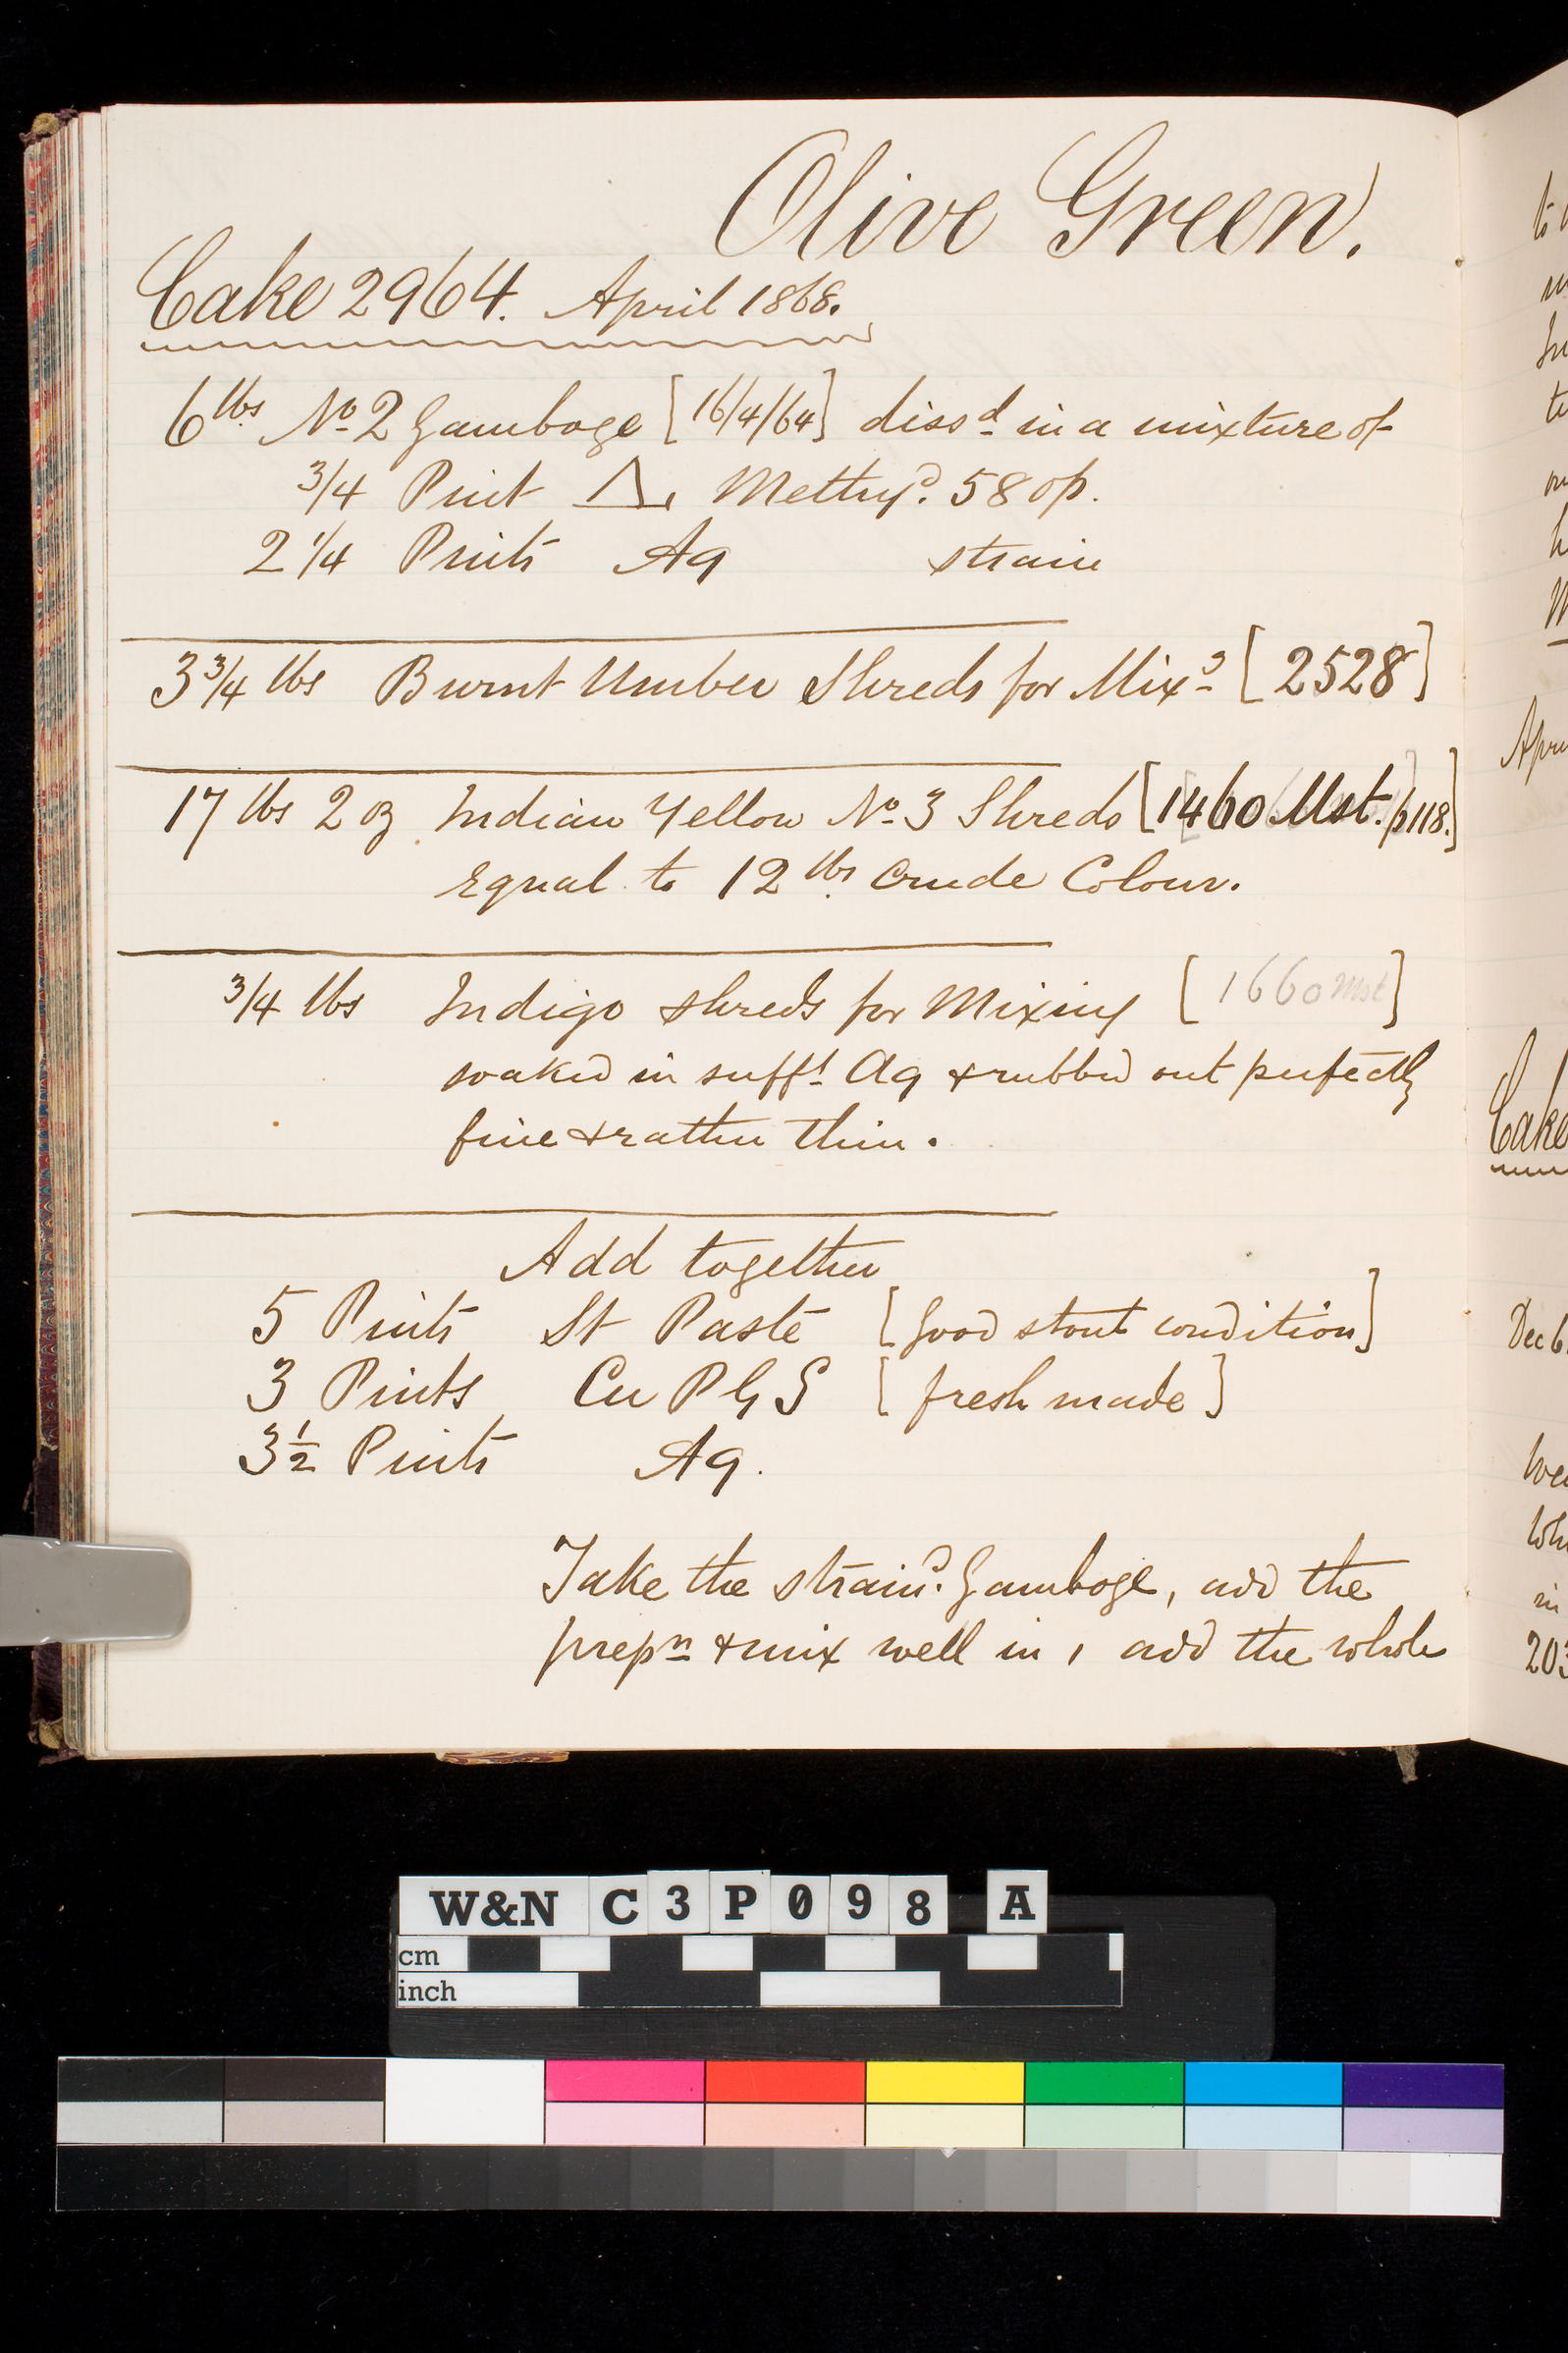 Olive Green.
Cake 2964. April 1868.
6 lbs No 2 Gamboge [16/4/64] dissd in a mixture of
3/4 Pint △, Methyd. 58 op.
2 1/4 Pints Aq strain
3 3/4 lbs Burnt Umber Shreds for Mixg [2528]
17 lbs 2 oz Indian Yellow No 3 Shreds [1460 Mst. p118.]
Equal to 12 lbs Crude Colour.
3/4 lbs Indigo shreds for Mixing [1660 Mst]
soaked in sufft Aq & rubbed out perfectly
fine & rather thin.
Add together
5 Pints St Paste [good stout condition]
3 Pints Cu P G S [fresh made]
3 1/2 Pints Aq.
Take the straind. Gamboge, add the
prepn & mix well in, add the whole
to
te
Apri
Cake
Dec 6
in
203
W&N C3P098 A
cm
inch